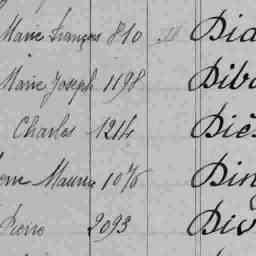 Marie François 810 Did
Marie Joseph 1198 Dib
Charles 1214 Diè
Maurice 1076 Din
Pierre 2093 Div